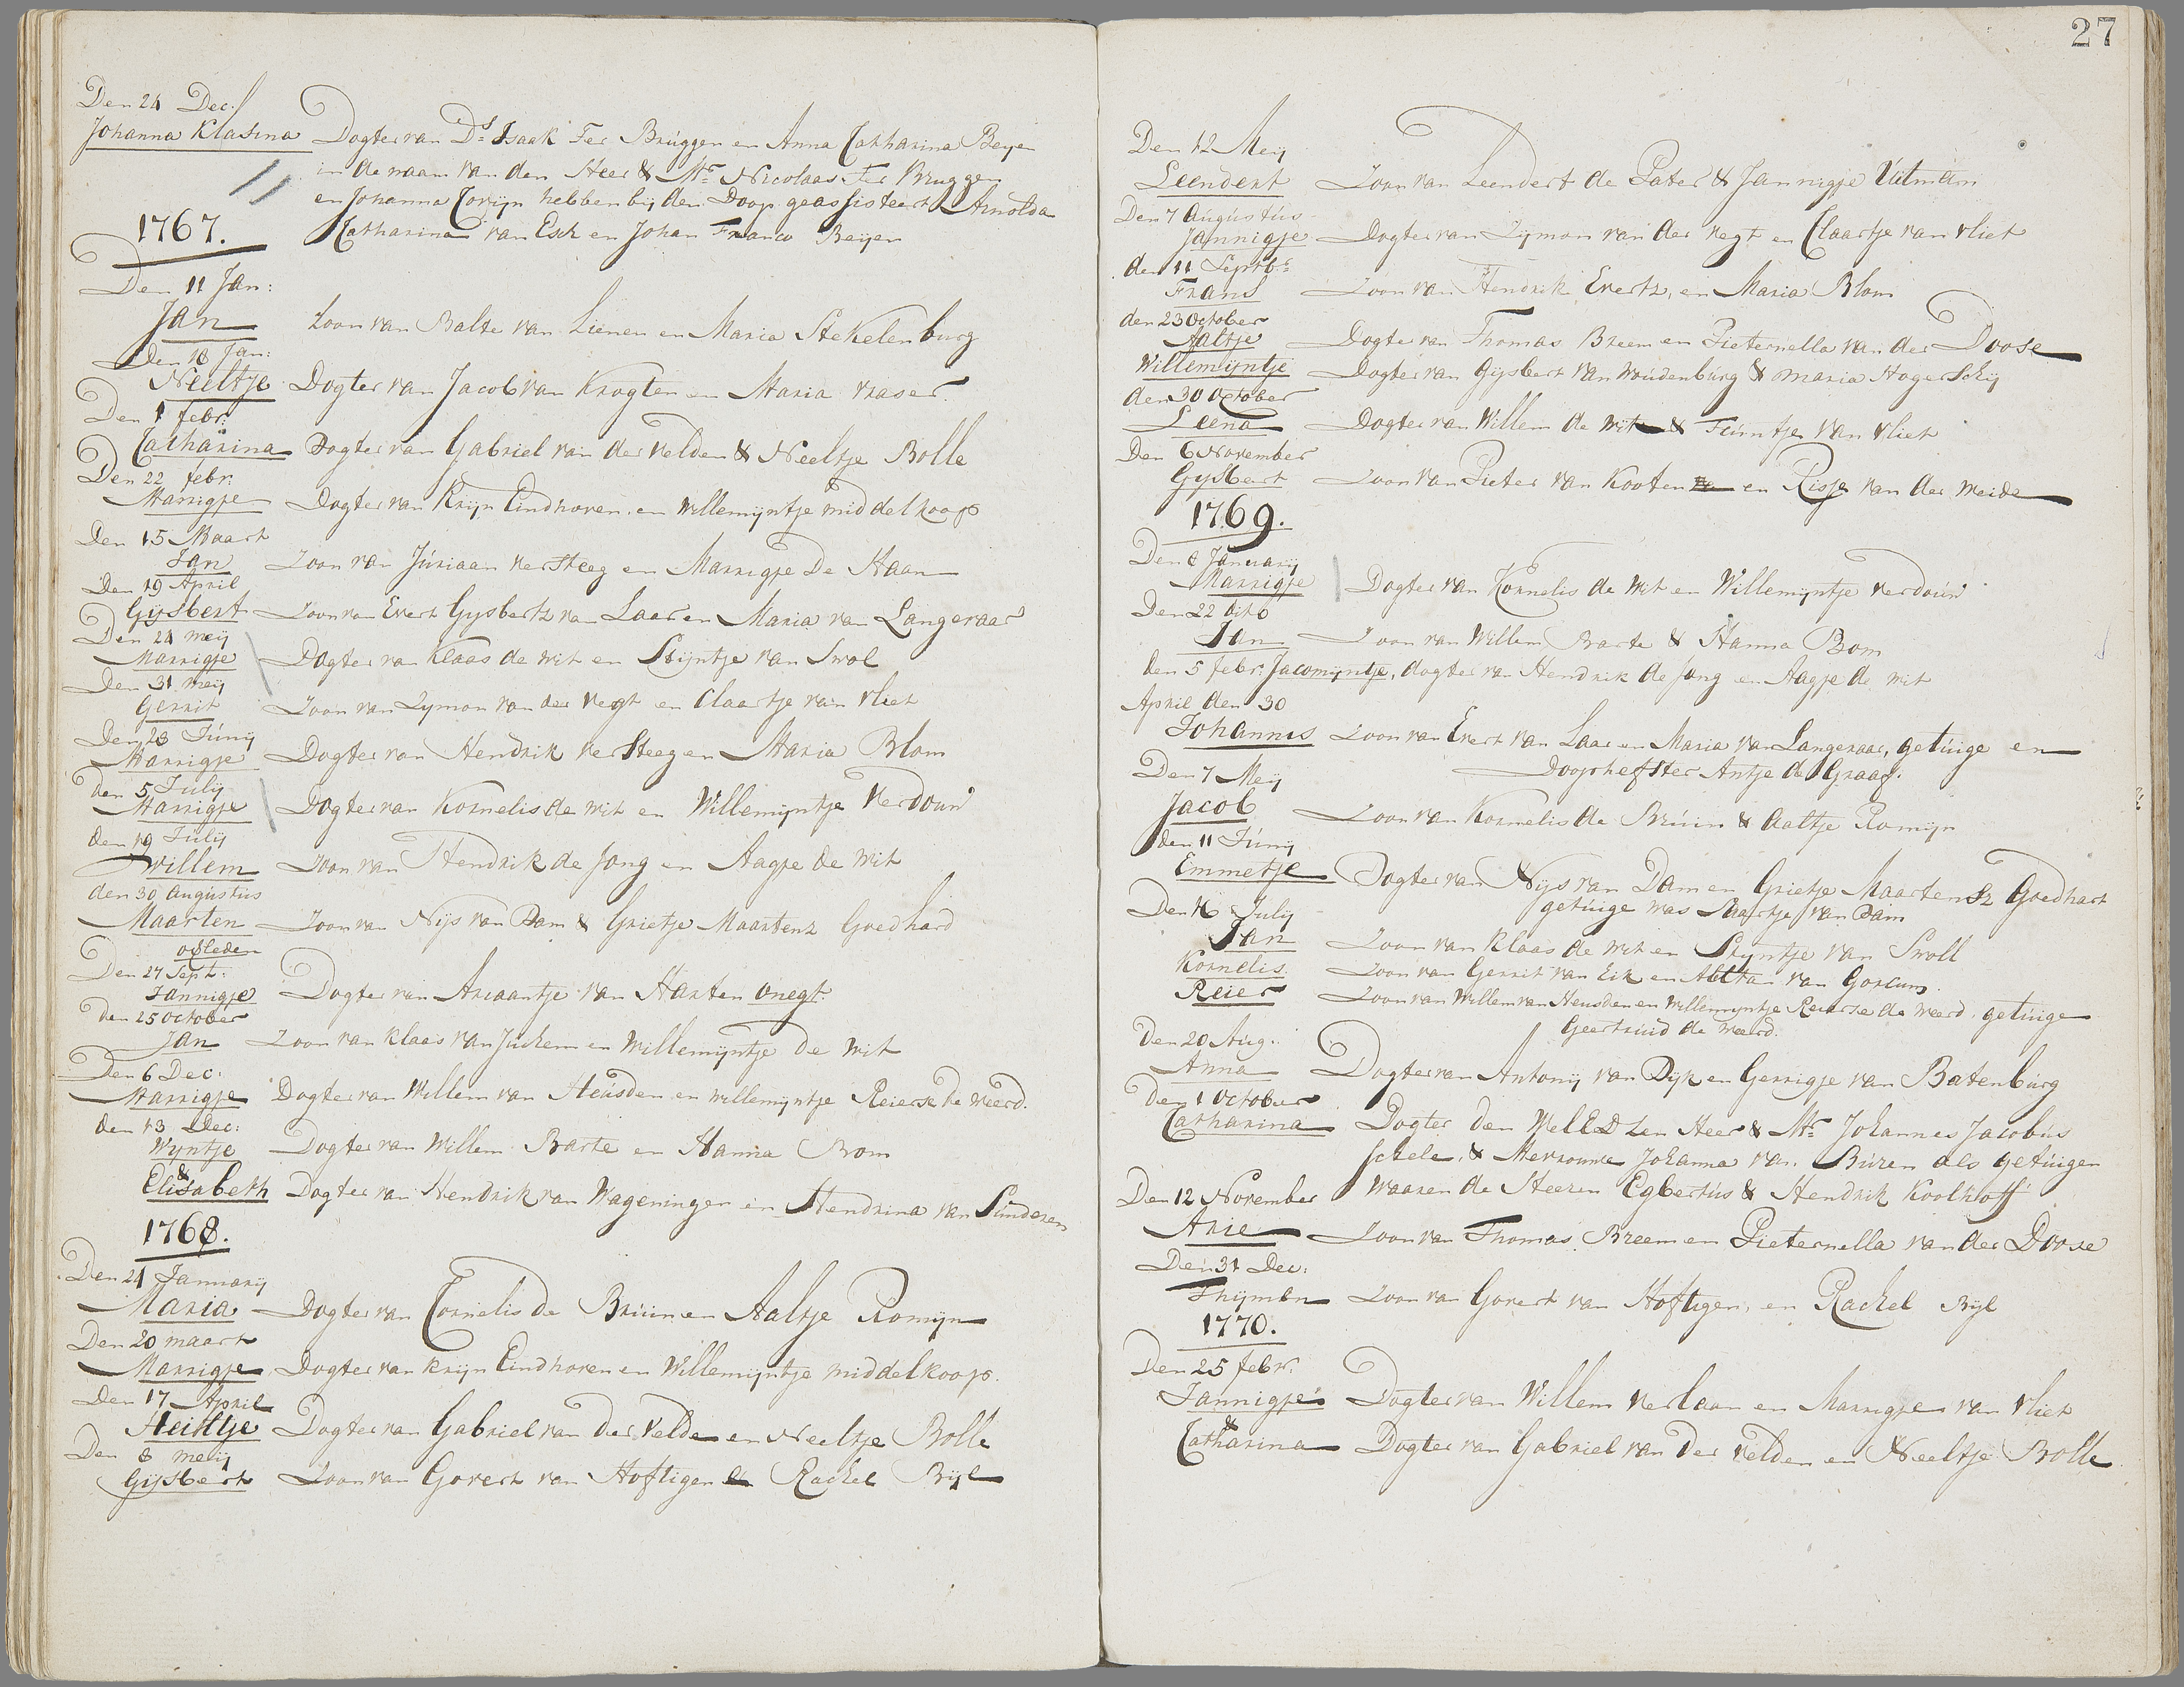 Den 24 Dec:
Johanna Klasina Dogter van Ds Isaak Ter Bruggen en Anna Catharina Beyen
in de naam van den Heer & Mr Nicolaas Ter Bruggen
en Johanna Corijn hebben bij den Doop geassisteert Arnolda
Catharina van Esch en Johan Franco Beijen
1767.
Den 11 Jan:
Jan Zoon van Balte van Lienen en Maria Stekelenburg
Den 18 Jan:
Neeltje Dogter van Jacob van Krogten en Maria vraser.
Den 1 febr:
Catharina Dogter van Gabriel van der velden & Neeltje Bolle
Den 22 febr:
Marrigje Dogter van Krijn Eindhoven en Willemijntje middelkoop
Den 15 Maart
Jan Zoon van Júriaan versteeg en Marrigje De Haan
Den 19 April
Gijsbert Zoon van Evert Gysbertz van Laar en Maria van Langeraar
Den 24 meij
Marrigje Dogter van Klaas de wit en Stijntje van Swol
Den 31 meij
Gerrit Zoon van Zymon van der Vegt en Claartje van vliet
Den 28 Júnij
Marrigje Dogter van Hendrik versteeg en Maria Blom
Den 5 Julij
Marrigje Dogter van Kornelis de wit en Willemijntje Verdoún
den 19 Júlij
Willem Zoon van Hendrik de Jong en Aagje de Wit
den 30 Augústús
Maarten Zoon van Nijs van Dam & Grietje Maartenz Goedhard
ofleden
Den 27 Sept:
Jannigje Dogter van Ariaantje van Harten onegt.
Den 25 October
Jan Zoon van Klaas van Juchem en Willemijntje de Wit
Den 6 Dec:
Marrigje Dogter van Willem van Heúsden en Willemijntje Reierse de Weerd.
den 13 Dec:
Wijntje Dogter van Willem Barte en Hanna Bom
&
Elisabeth Dogter van Hendrik van Wageningen en Hendrina van Súnderen
1768.
Den 24 Januarij
Maria Dogter van Cornelis de Brúin en Aaltje Romijn
Den 20 maart
Marrigje Dogter van krijn Eindhoven en Willemijntje middelkoop.
Den 17 April
Heiltje Dogter van Gabriel van der Velde en Neeltje Bolle
Den 8 meij
Gijsbert Zoon van Govert van Hoftigen en Rachel Bijl
27
Den 12 Meij
Leendert Zoon van Leendert de Pater & Jannigje Uitman
Den 7 Augústús
Jannigje Dogter van Zijmon van der Vegt en Claartje van vliet
den 11 Septbr
Frans Zoon van Hendrik Evertz, en Maria Blom
den 23 October
Aaltje Dogter van Thomas Breem en Pieternella van der Doose
Willemijntje Dogter van Gijsbert van Woudenburg & Maria Hogerschij
den 30 October
Leena Dogter van Willem de Wit & Teúntje van vliet
Den 6 November
Gysbert Zoon van Pieter van Kooten en Risje van der Meide
1769.
Den 8 Januarij
Marrigje Dogter van Kornelis de Wit en Willemijntje verdoún
Den 22 dito
Jan Zoon van Willem Barte & Hanna Bom
Den 5 febr: Jacomijntje, dogter van Hendrik de Jong en Aagje de Wit
April den 30
Johannes Zoon van Evert van Laar en Maria van Langeraar, getúige en
Doopheffster Antje de Graaf.
Den 7 Meij
Jacob Zoon van Kornelis de Brúin & Aaltje Romijn
Den 11 Júnij
Emmetje Dogter van Nijs van Dam en Grietje Maartensz Goedhart
getúige was Maartje van Dam
Den 16 Julij
Jan Zoon van Klaas de wit en Stijntje van Swoll
Kornelis Zoon van Gerrit van Eik en Aletta van Gorcum.
Reier Zoon van Willem van Heusden en Willemijntje Reierse de Weerd. getúige
Geertruid de Weerd.
Den 20 Aug:
Anna Dogter van Antonij van Dijk en Gerrigje van Batenbúrg
Den 1 October
Catharina Dogter den WelEdelen Heer & Mr Johannes Jacobús
Schele, & Mevrouwe Johanna van Búren als getúigen
Den 12 November waaren de Heeren Egbertús & Hendrik Koolhoff
Arie Zoon van Thomas Breem en Pieternella van der Doose
Den 31 Dec:
Thijmen Zoon van Govert van Hoftigen, en Rachel Bijl
1770.
Den 25 febr:
Jannigje Dogter van Willem Verlaan en Marrigje van Vliet
&
Catharina Dogter van Gabriel van der Velden en Neeltje Bolle